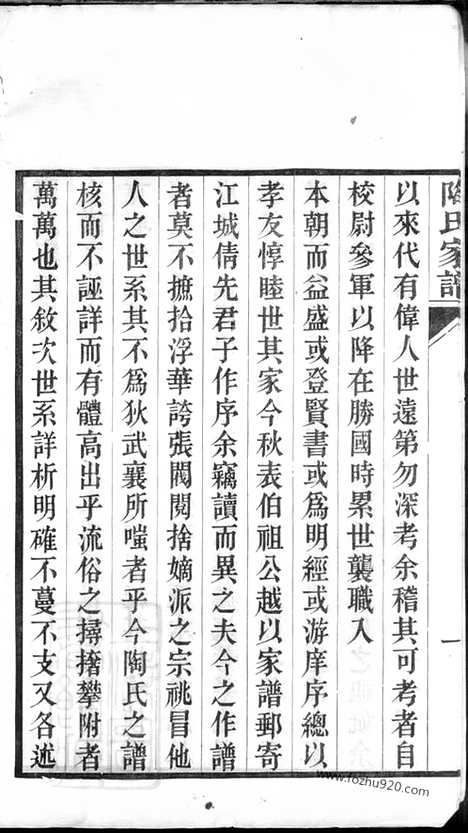 陶氏家譜
一
以來代有偉人世遠第勿深考余稽其可考者自
校尉參軍以降在勝國時累世襲職入
本朝而益盛或登賢書或爲明經或游庠序總以
孝友惇睦世其家今秋表伯祖公越以家譜郵寄
江城倩先君子作序余竊讀而異之夫今之作譜
者莫不摭拾浮華誇張閥閱捨嫡派之宗祧冒他
人之世系其不爲狄武襄所嗤者乎今陶氏之譜
核而不誣詳而有體高出乎流俗之撏撦攀附者
萬萬也其敘次世系詳析明確不蔓不支又各述
www.fozhu920.com